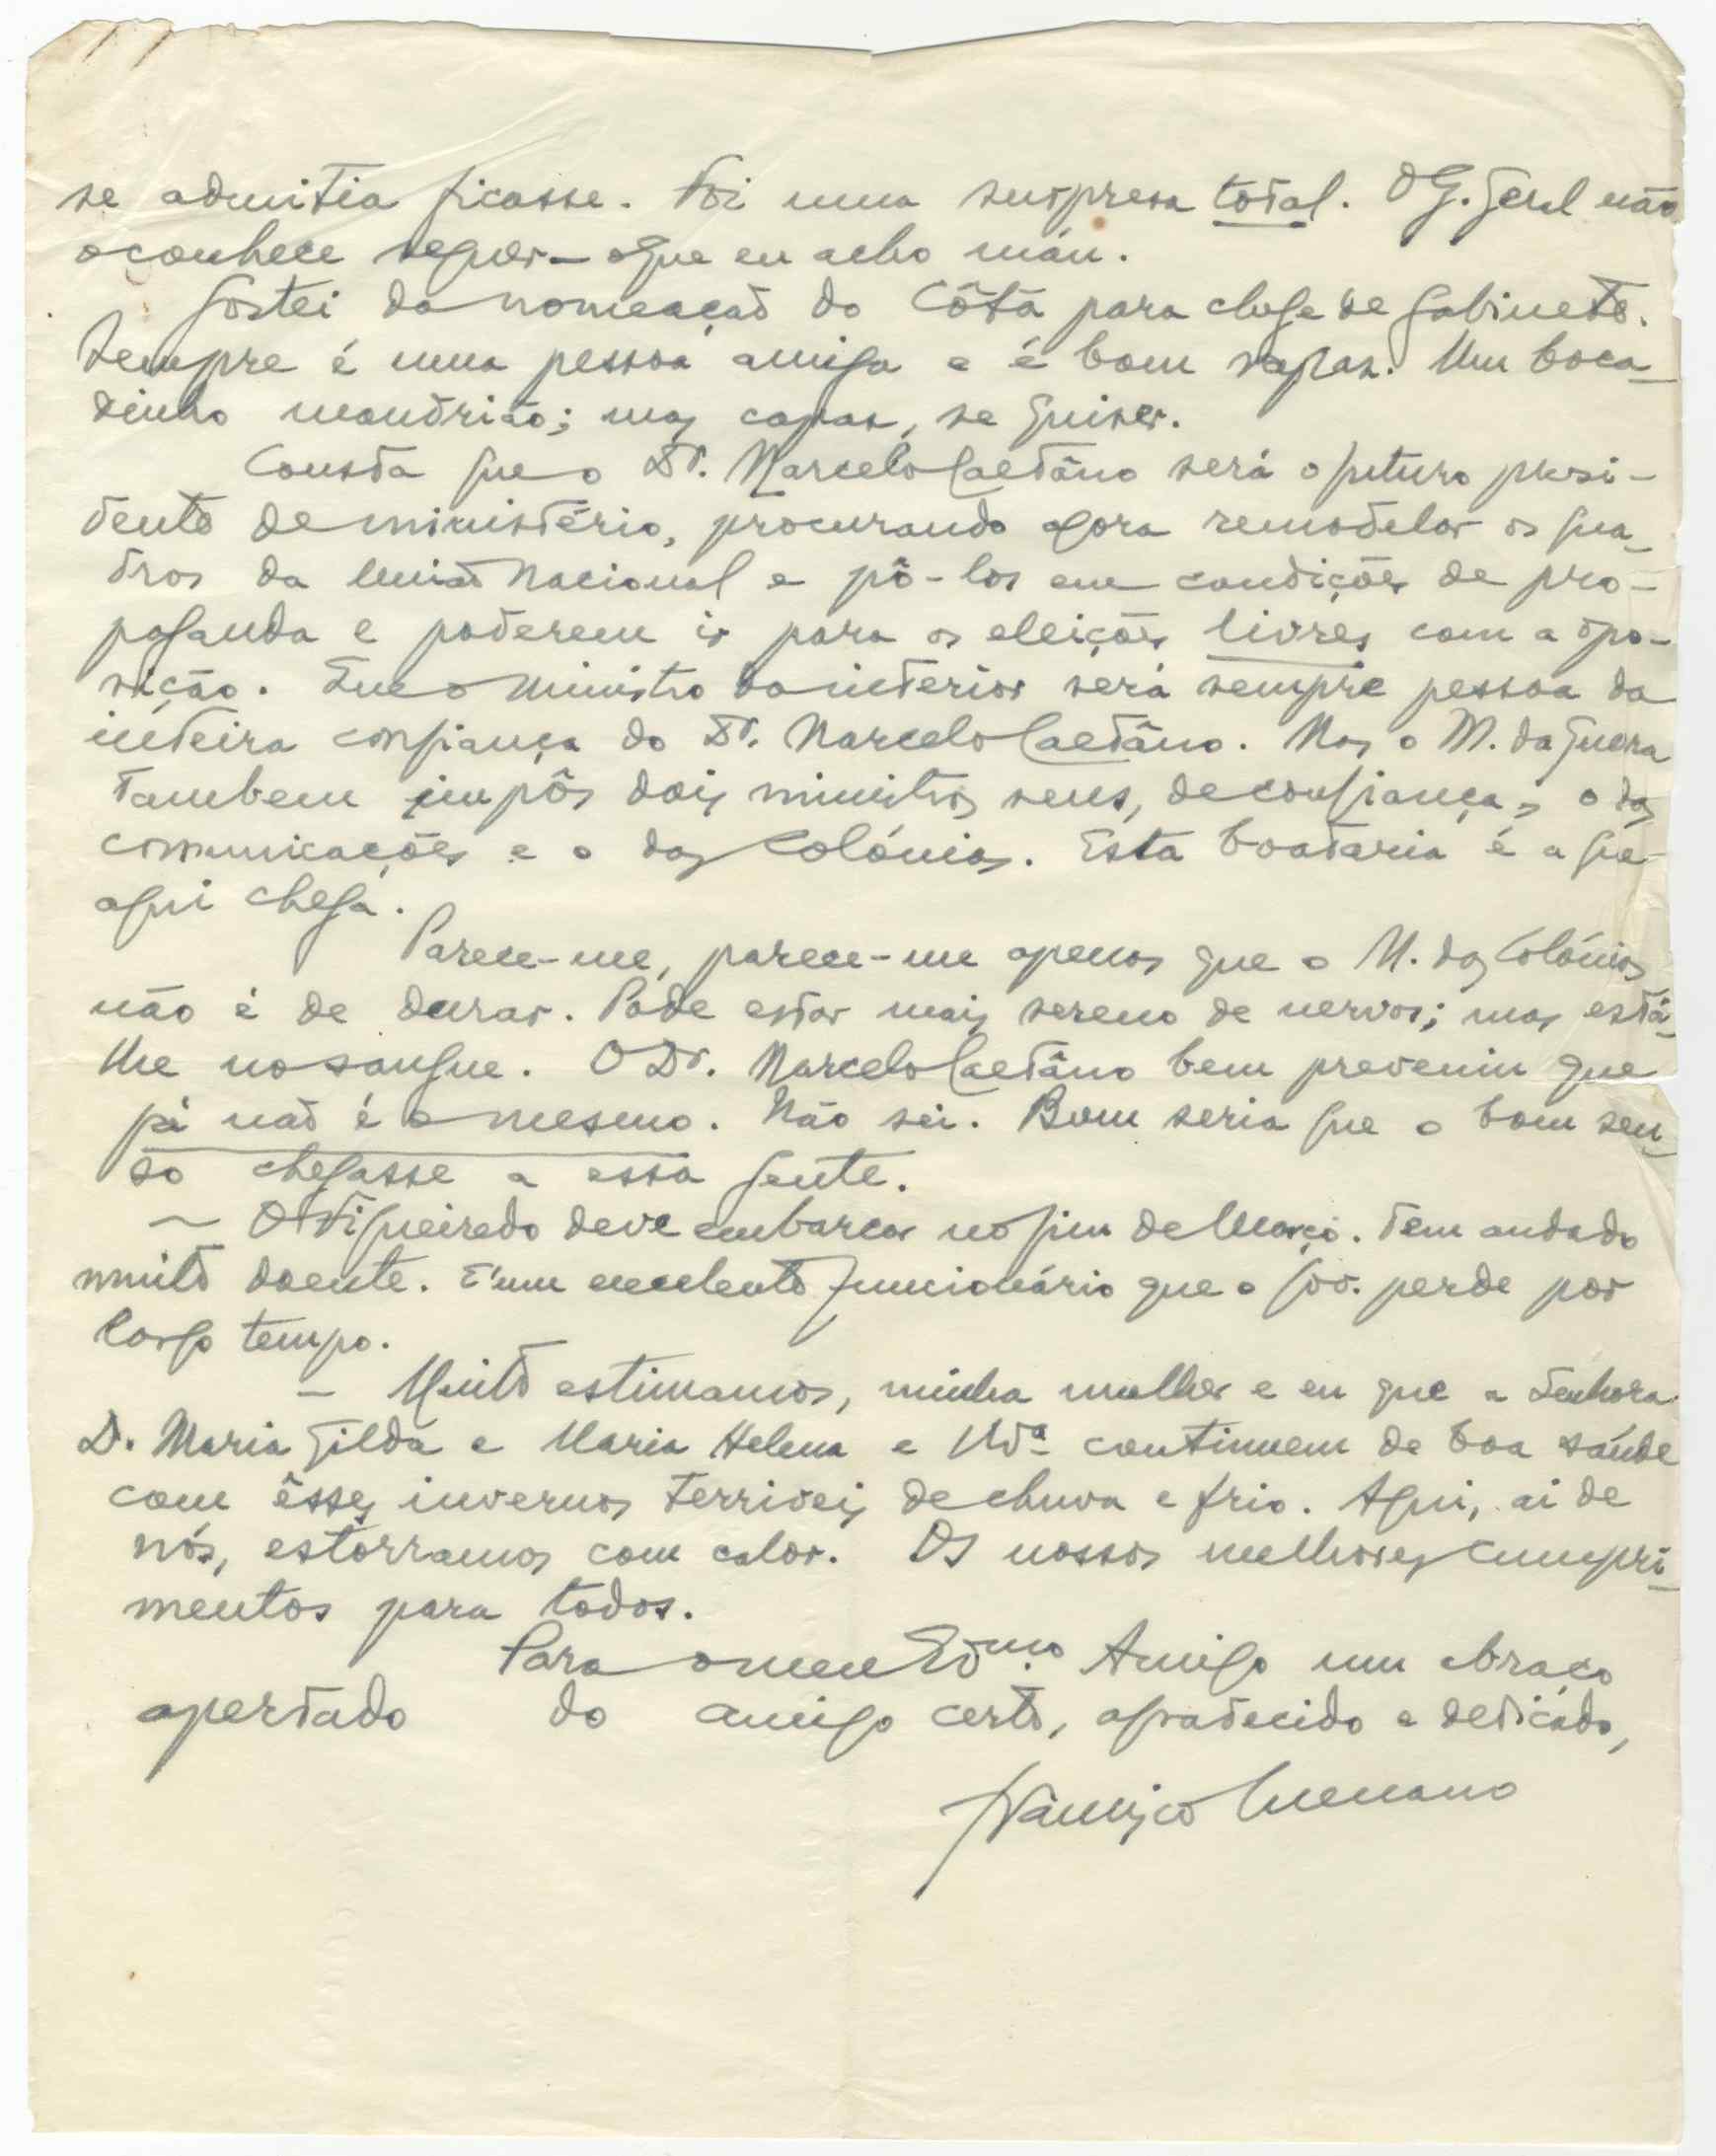 se admitia ficasse. Foi uma surpresa total. O G. Geral não
o conhece sequer – o que eu acho máu.
Gostei da nomeação do Côta para chefe de gabinete.
Sempre é uma pessoa amiga e é bom rapaz. Um boca-
dinho mandrião; mas capaz, se quiser.
Consta que o Dr. Marcelo Caetâno será o futuro presi-
dente de ministério, procurando agora remodelar os qua-
dros da União Nacional e pô-los em condições de pro-
paganda e poderem ir para as eleições livres com a opo-
sição. Que o Ministro do interior será sempre pessoa da
inteira confiança do Dr. Marcelo Caetâno. Mas o M. da Guerra
tambem impôs dois ministros seus, de confiança, o das
comunicações e o das Colónias. Esta boataria é a que
aqui chega.
Parece-me, parece-me apenas que o M. das Colónias
não é de durar. Pode estar mais sereno de nervos; mas está-
lhe no sangue. O Dr. Marcelo Caetâno bem preveniu que
já não é o mesmo. Não sei. Bom seria que o bom sen-
so chegasse a essa gente.
– O Figueiredo deve embarcar no fim de Março. Tem andado
muito doente. É um excelente funcionário que o Gov. perde por
largo tempo.
– Muito estimamos, minha mulher e eu que a Senhora
D. Maria Gilda e Maria Helena e continuem de boa saúde
com êsses invernos terriveis de chuva e frio. Aqui, ai de
nós, estorramos com calor. Os nossos melhores cumpri-
mentos para todos.
Para o meu Amigo um abraço
apertado do amigo certo, agradecido e dedicado,